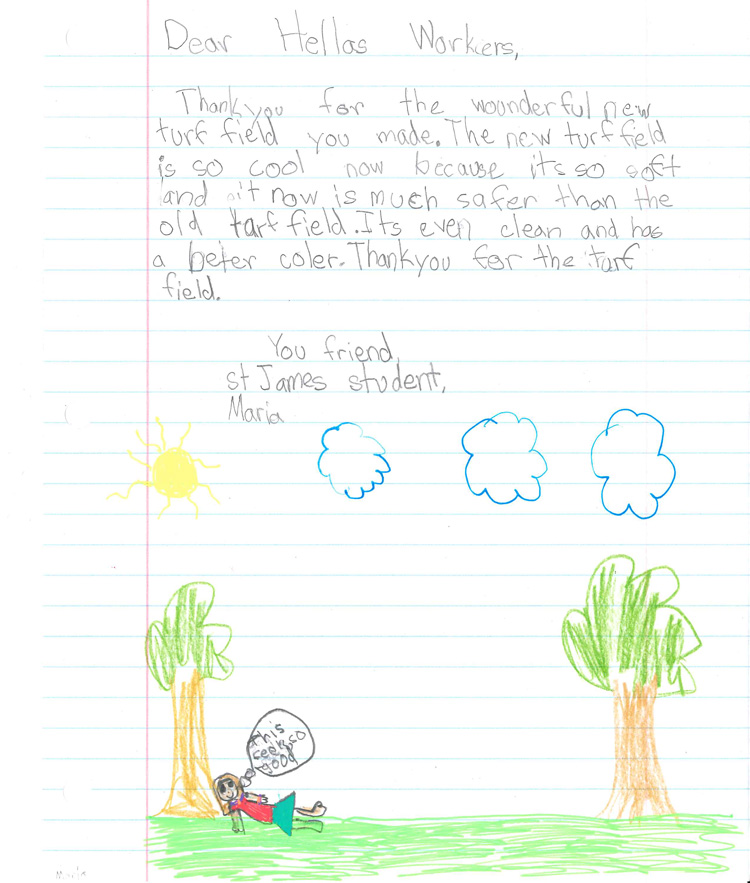 Dear Hellas Workiers,
Thankyou for the wounderful new
turf field you made. The new turf field
is so cool now because its so soft
and it now is much safer than the
old tarf field. Its even clean and has
a beter coler. Thankyou for the tarf
field.
You friend,
st James student,
Maria
this
feels so
good
Maria